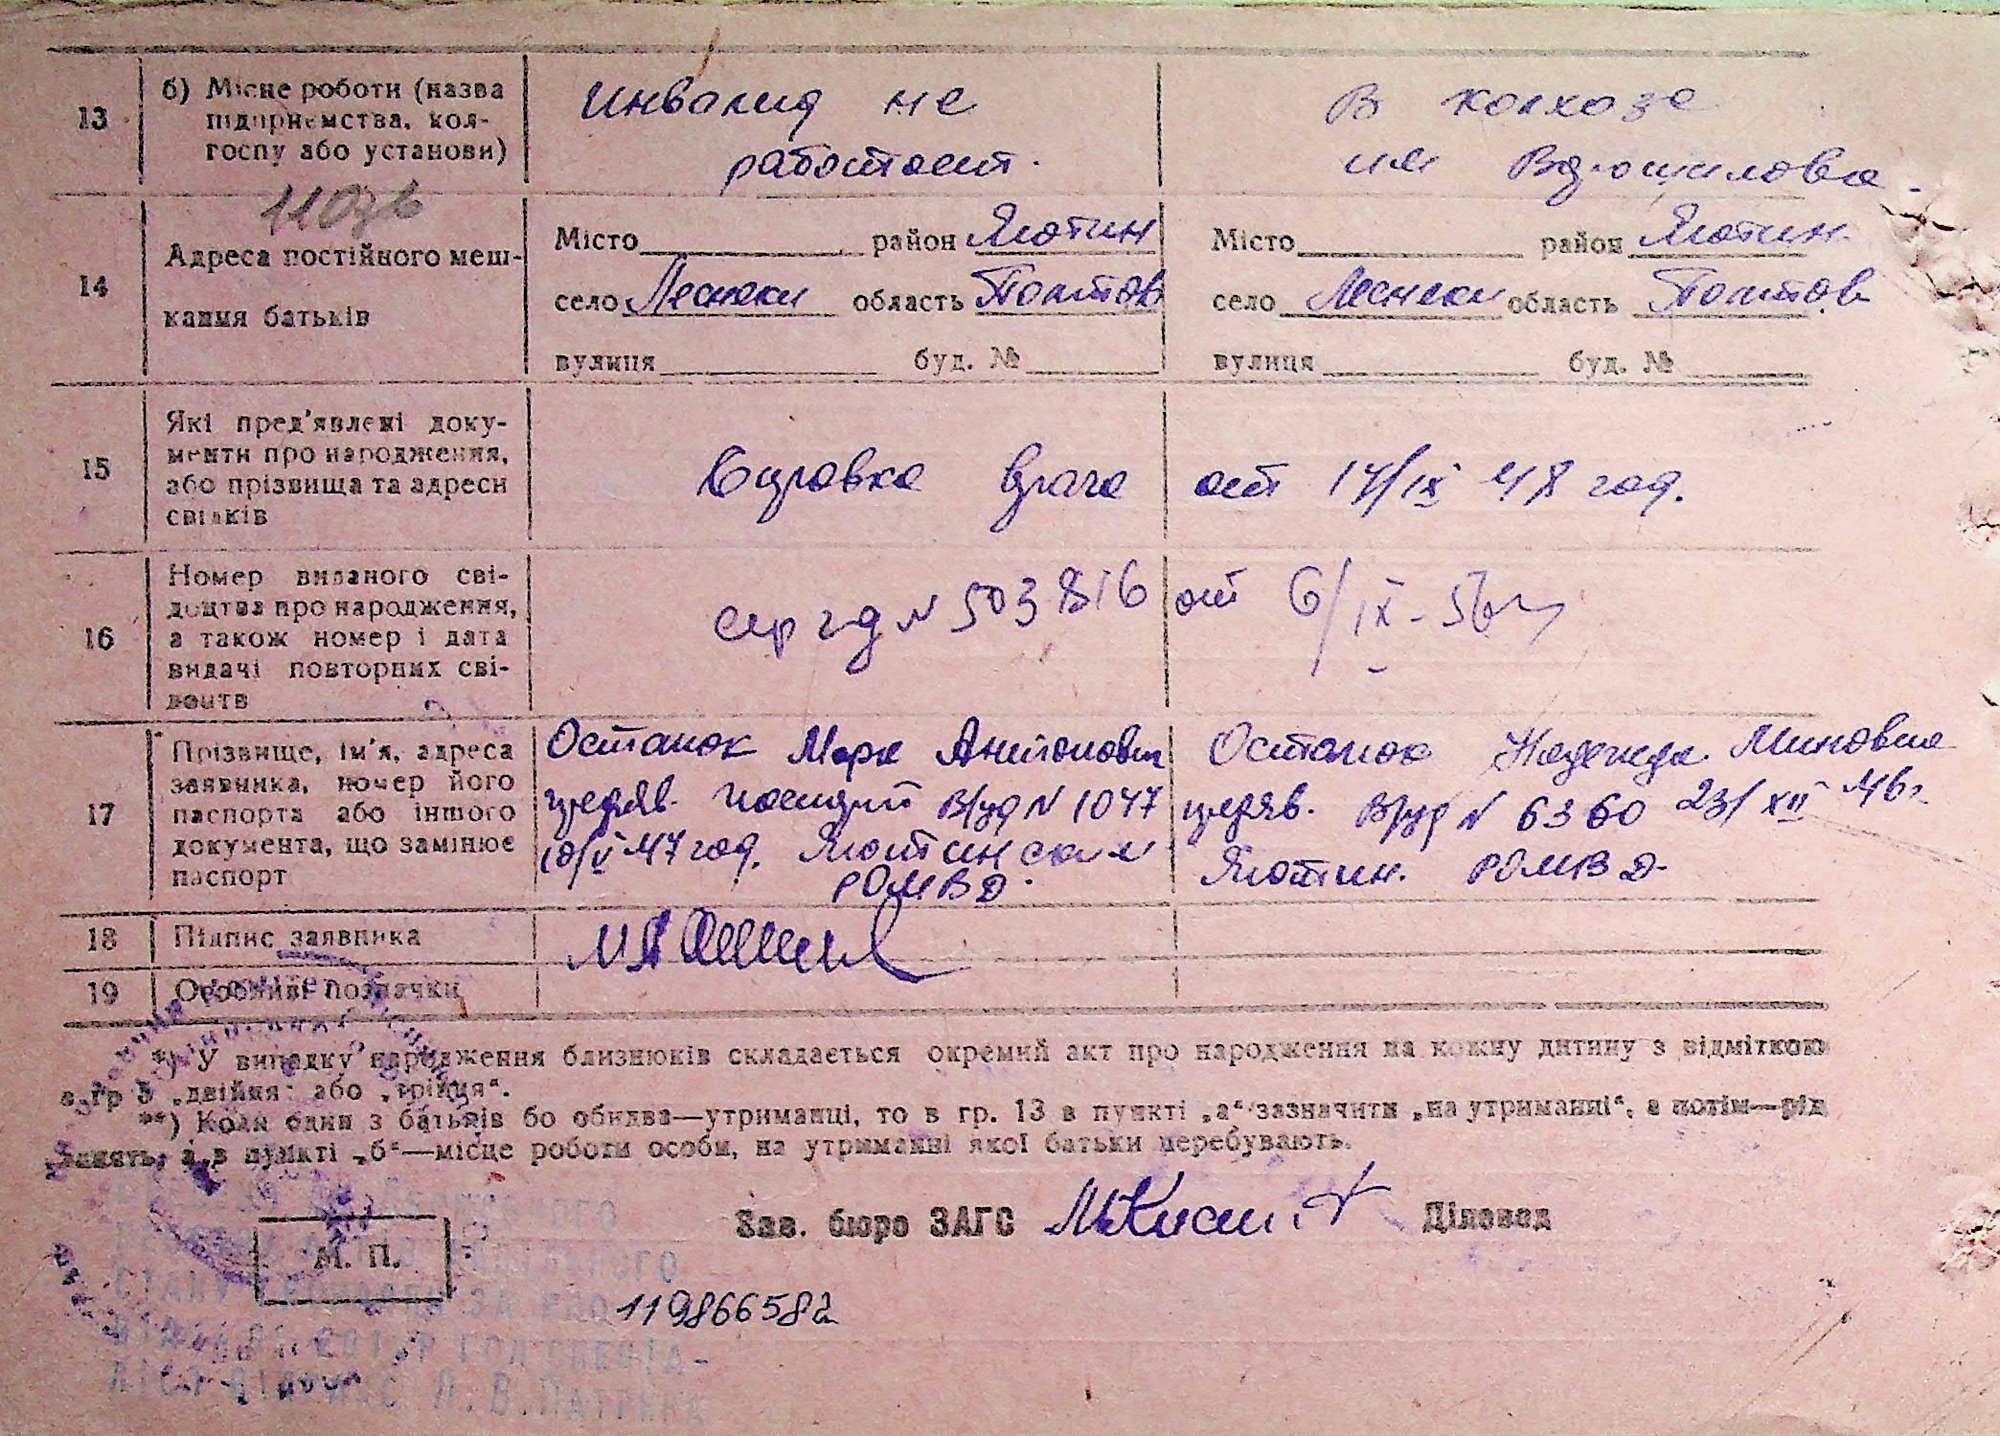 13 б) Місце роботи (назва підприємства, кол-госпу або установи)
Инвалид не
работает.
В колхозе
им Ворошилова.
14 Адреса постійного меш-
кання батьків
Місто район Яготин
село Леснеки область Полтов
вулиця буд. №
Місто район Яготин.
село Леснеки область Полтов.
вулиця буд. №
15 Які пред'явлені доку-
менти про народження,
або прізвища та адреси
свідків
Справка врача от 17/IX 48 год.
16 Номер виданого сві-
доцтва про народження,
а також номер і дата
видачі повторних сві-
доцтв
сер N 503816 от 6/IX-56г
17 Прізвище, ім'я, адреса
заявника, номер його
паспорта або іншого
документа, що замінює
паспорт
Останок Марк Антонович
N 1047
10/V 47 год. Яготинским
РОМВД.
Надежда Миновна
N 6360 23/XII 46г.
Яготин. РОМВД.
18 Підпис заявника
19 Особливі позначки
*) У випадку народження близнюків складається окремий акт про народження на кожну дитину з відміткою
в гр 5 „двійня" або „трійня".
**) Коли один з батьків бо обидва—утриманці, то в гр. 13 в пункті „а" зазначити „на утриманні", а потім—рід
занять, а в пункті „б"—місце роботи особи, на утриманні якої батьки перебувають.
Зав. бюро ЗАГС Діловод
М. П.